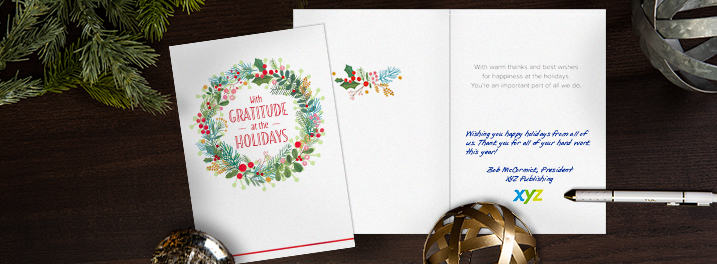 With
GRATITUDE
at the
HOLIDAYS
With warm thanks and best wishes
for happiness at the holidays.
You're an important part of all we do.
Wishing you happy holidays from all of
us. Thank you for all of your hard work
this year!
Bob McCormick, President
XYZ Publishing
xyz